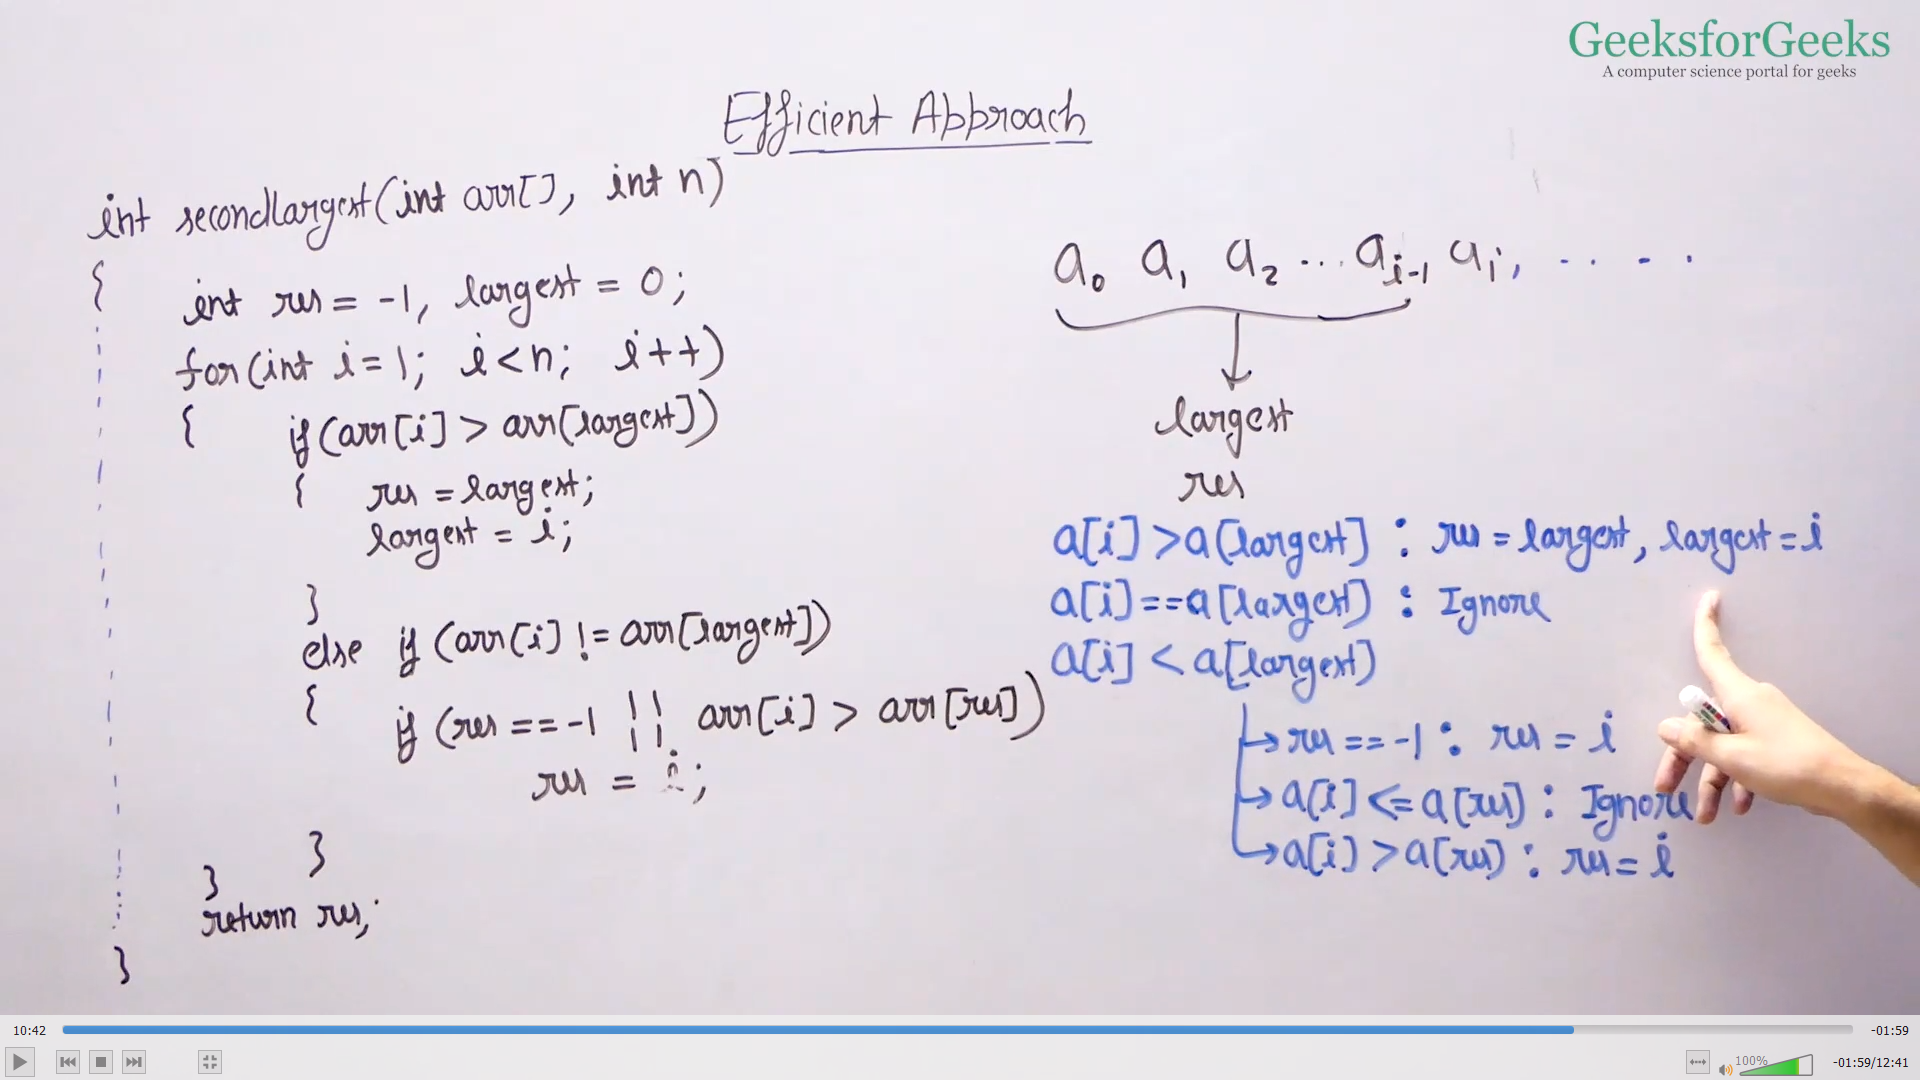 GeeksforGeeks
A computer science portal for geeks
Efficient Approach
int secondLargest(int arr[], int n)
{
int res = -1, largest = 0;
for(int i=1; i<n; i++)
{ if(arr[i] > arr[largest])
{ res = largest;
largest = i;
}
else if (arr[i] != arr[largest])
{ if (res == -1 || arr[i] > arr[res])
res = i;
}
}
return res;
}
a0 a1 a2 ... ai-1 ai, .. - - .
largest
res
a[i] > a[largest] : res = largest, largest = i
a[i] == a[largest] : Ignore
a[i] < a[largest]
→ res == -1 : res = i
→ a[i] <= a[res] : Ignore
→ a[i] > a[res] : res = i
10:42
-01:59
100%
-01:59/12:41